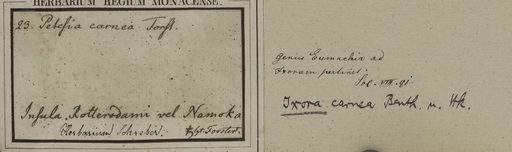 HERBARIUM REGIUM MONACENSE.
23. Petesia carnea Forst.
Insula Rotterodami vel Namoka
Herbarium Schreber. Forster.
Genus Eumachia ad
Ixoram pertinet.
Sol. VIII. 91
Ixora carnea Benth. u. Hk.